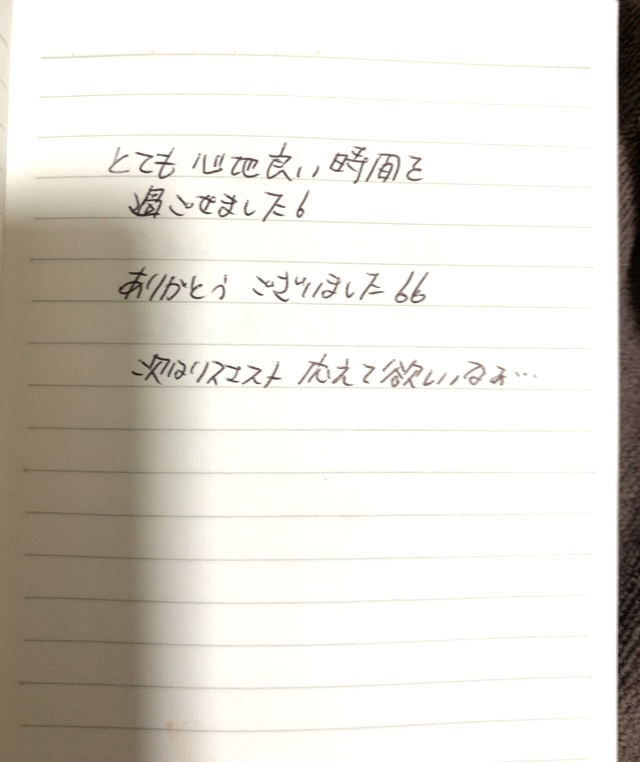 とても 心地良い時間を
過ごせました6
ありがとう ございました66
次はリクエスト 応えて欲しいなぁ…